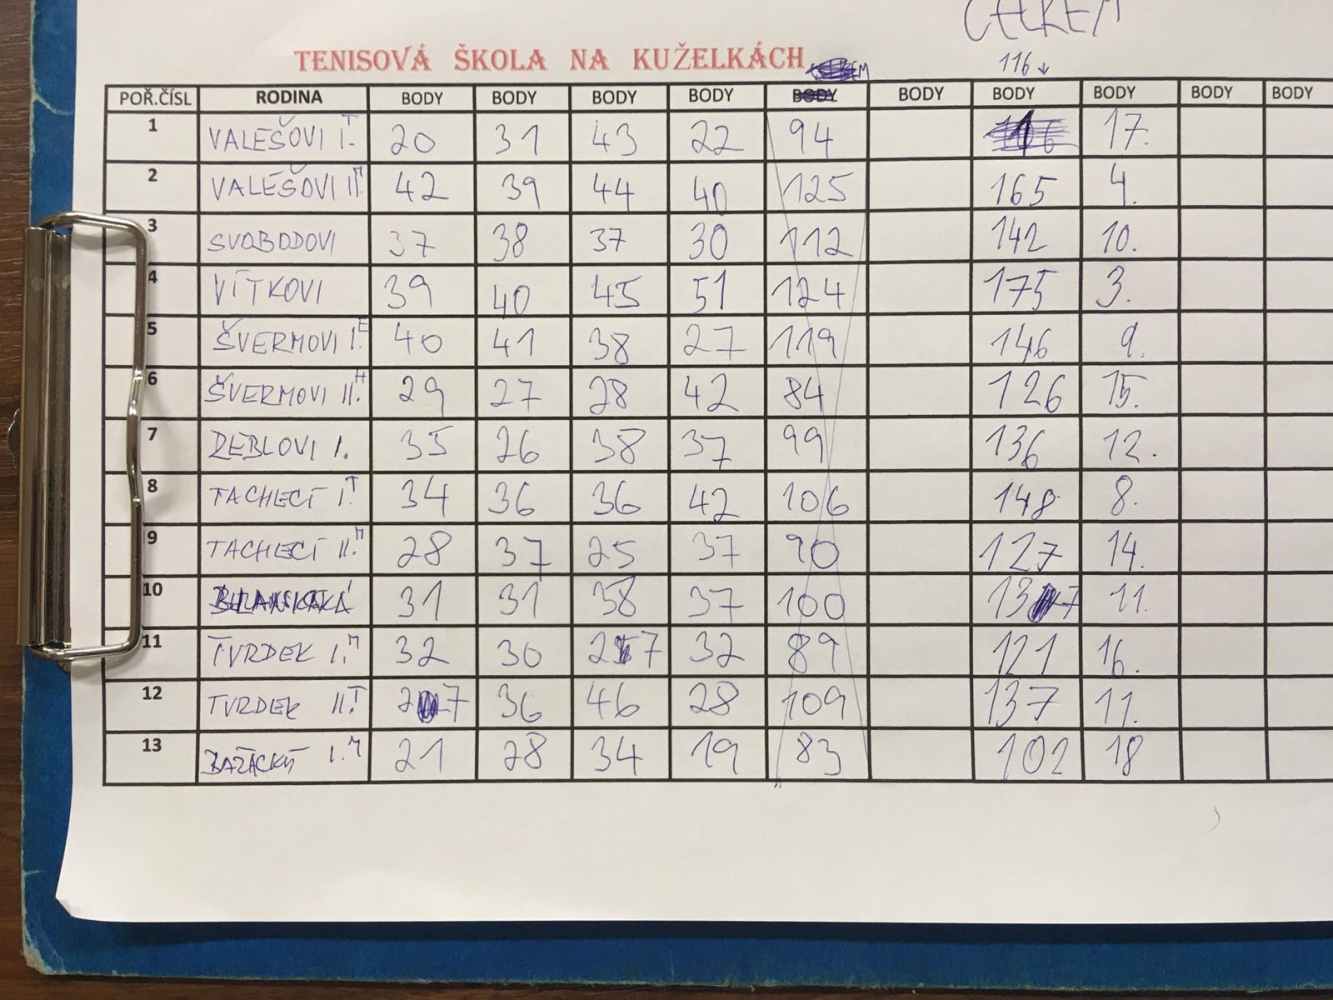 CELKEM
TENISOVÁ ŠKOLA NA KUŽELKÁCH
116
POŘ.ČÍSL RODINA BODY BODY BODY BODY BODY BODY BODY BODY BODY BODY
1 VALEŠOVI I.T 20 31 43 22 94 116 17.
2 VALEŠOVI II.M 42 39 44 40 125 165 4.
3 SVOBODOVI 37 38 37 30 112 142 10.
4 VÍTKOVI 39 40 45 51 124 175 3.
5 ŠVERMOVI I.E 40 41 38 27 119 146 9.
6 ŠVERMOVI II.H 29 27 28 42 84 126 15.
7 DEBLOVI I. 35 26 38 37 99 136 12.
8 TACHECÍ I.T 34 36 36 42 106 148 8.
9 TACHECÍ II.M 28 37 25 37 90 127 14.
10 31 31 38 37 100 137 11.
11 TVRDEK I.M 32 30 27 32 89 121 16.
12 TVRDEK II.T 27 36 46 28 109 137 11.
13 I.M 21 28 34 19 83 102 18